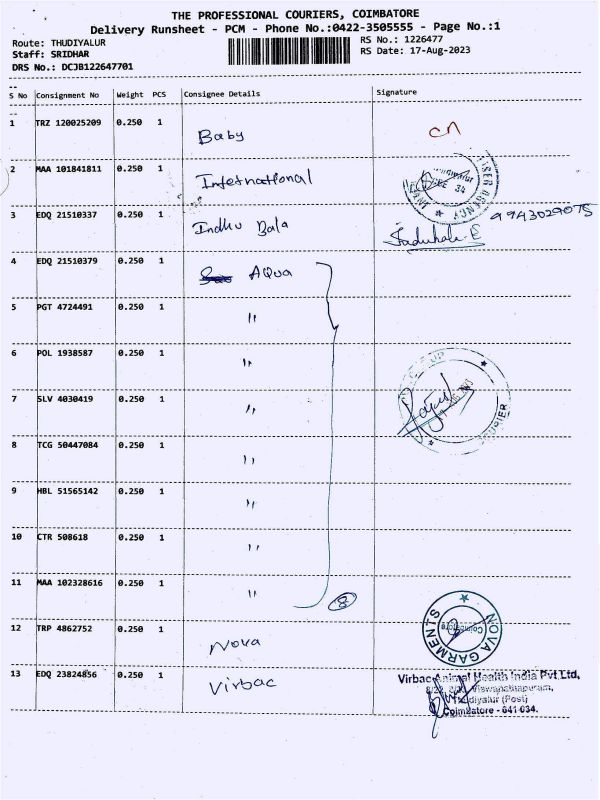 THE PROFESSIONAL COURIERS, COIMBATORE
Delivery Runsheet - PCM - Phone No.:0422-3505555 - Page No.:1
Route: THUDIYALUR
Staff: SRIDHAR
DRS No.: DCJB122647701
RS No.: 1226477
RS Date: 17-Aug-2023
S No Consignment No Weight PCS Consignee Details Signature
1 TRZ 120025209 0.250 1 Baby
2 MAA 101841811 0.250 1 International
3 EDQ 21510337 0.250 1 Indhu Bala 9943029075
4 EDQ 21510379 0.250 1 AQua
5 PGT 4724491 0.250 1 "
6 POL 1938587 0.250 1 "
7 SLV 4030419 0.250 1 "
8 TCG 50447084 0.250 1 "
9 HBL 51565142 0.250 1 "
10 CTR 508618 0.250 1 "
11 MAA 102328616 0.250 1 " 8
12 TRP 4862752 0.250 1 Nova
NOVA GARMENTS
Coimbatore
13 EDQ 23824856 0.250 1 Virbac
Virbac Animal Health India Pvt Ltd,
Thudiyalur (Post)
Coimbatore - 641 034.